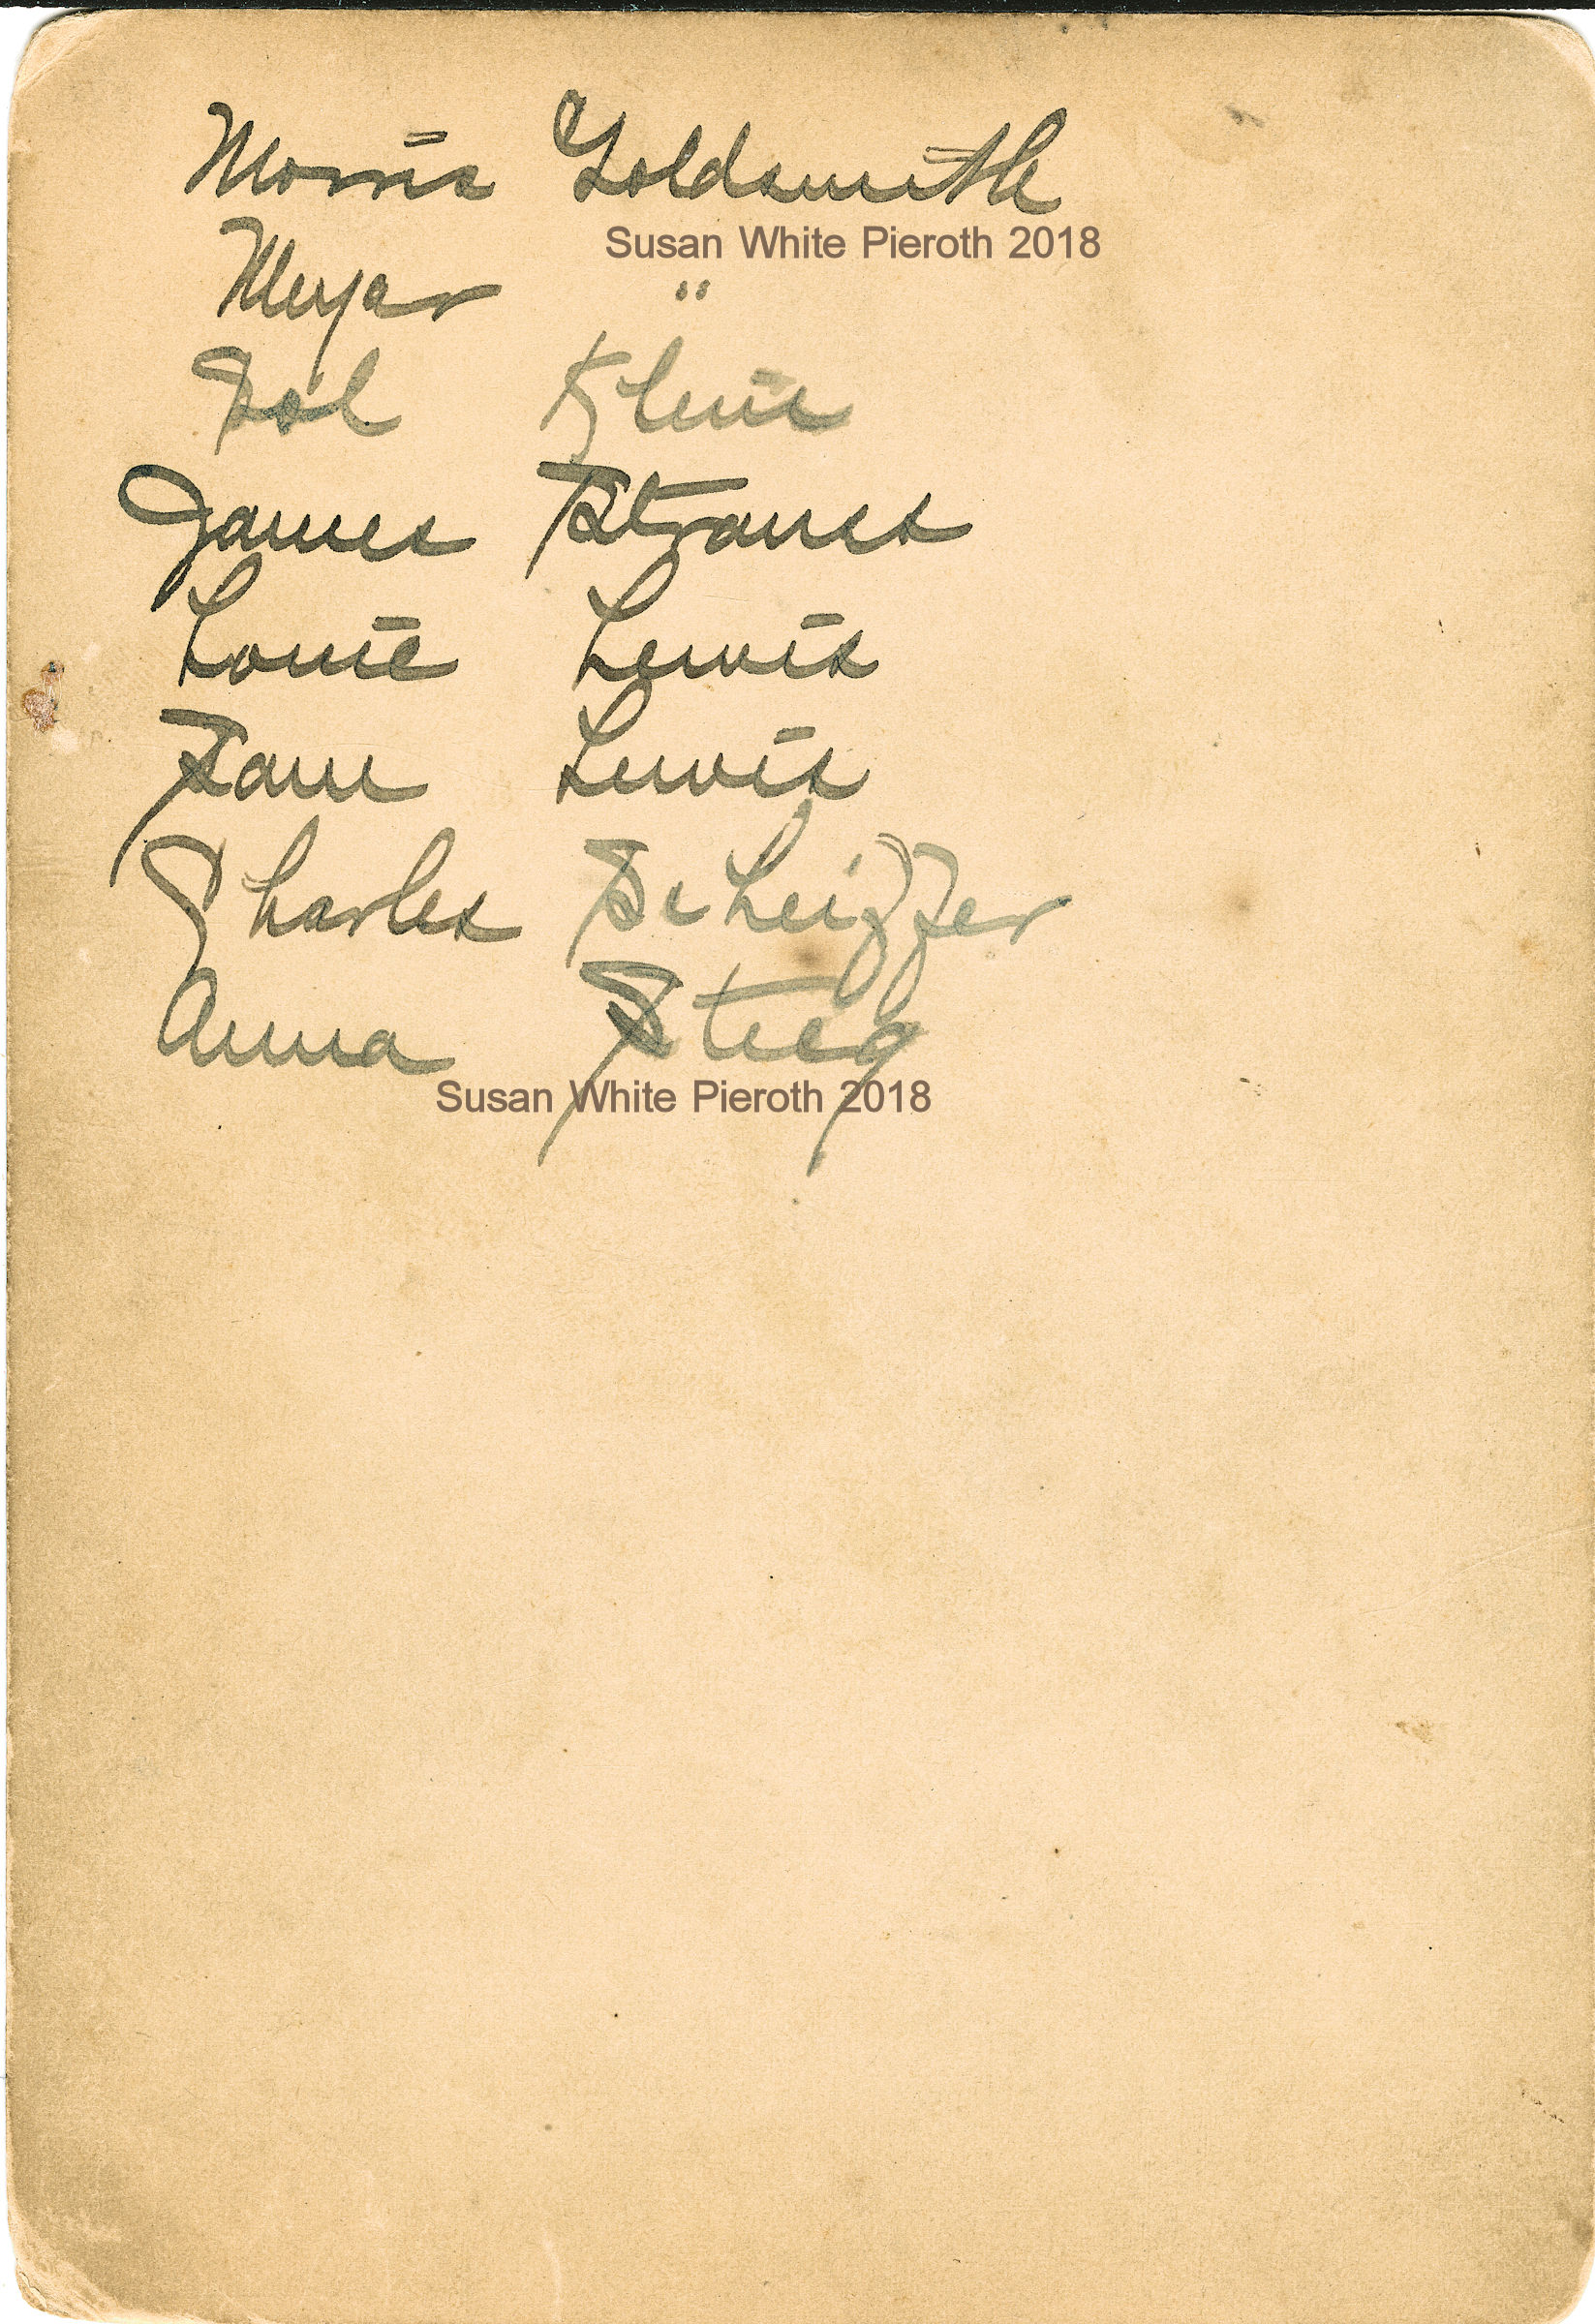 Morris Goldsmith
Susan White Pieroth 2018
Meyer "
Sol Klein
James Strauss
Louie Lewis
Sam Lewis
Charles Scheizzer
Anna Stieg
Susan White Pieroth 2018